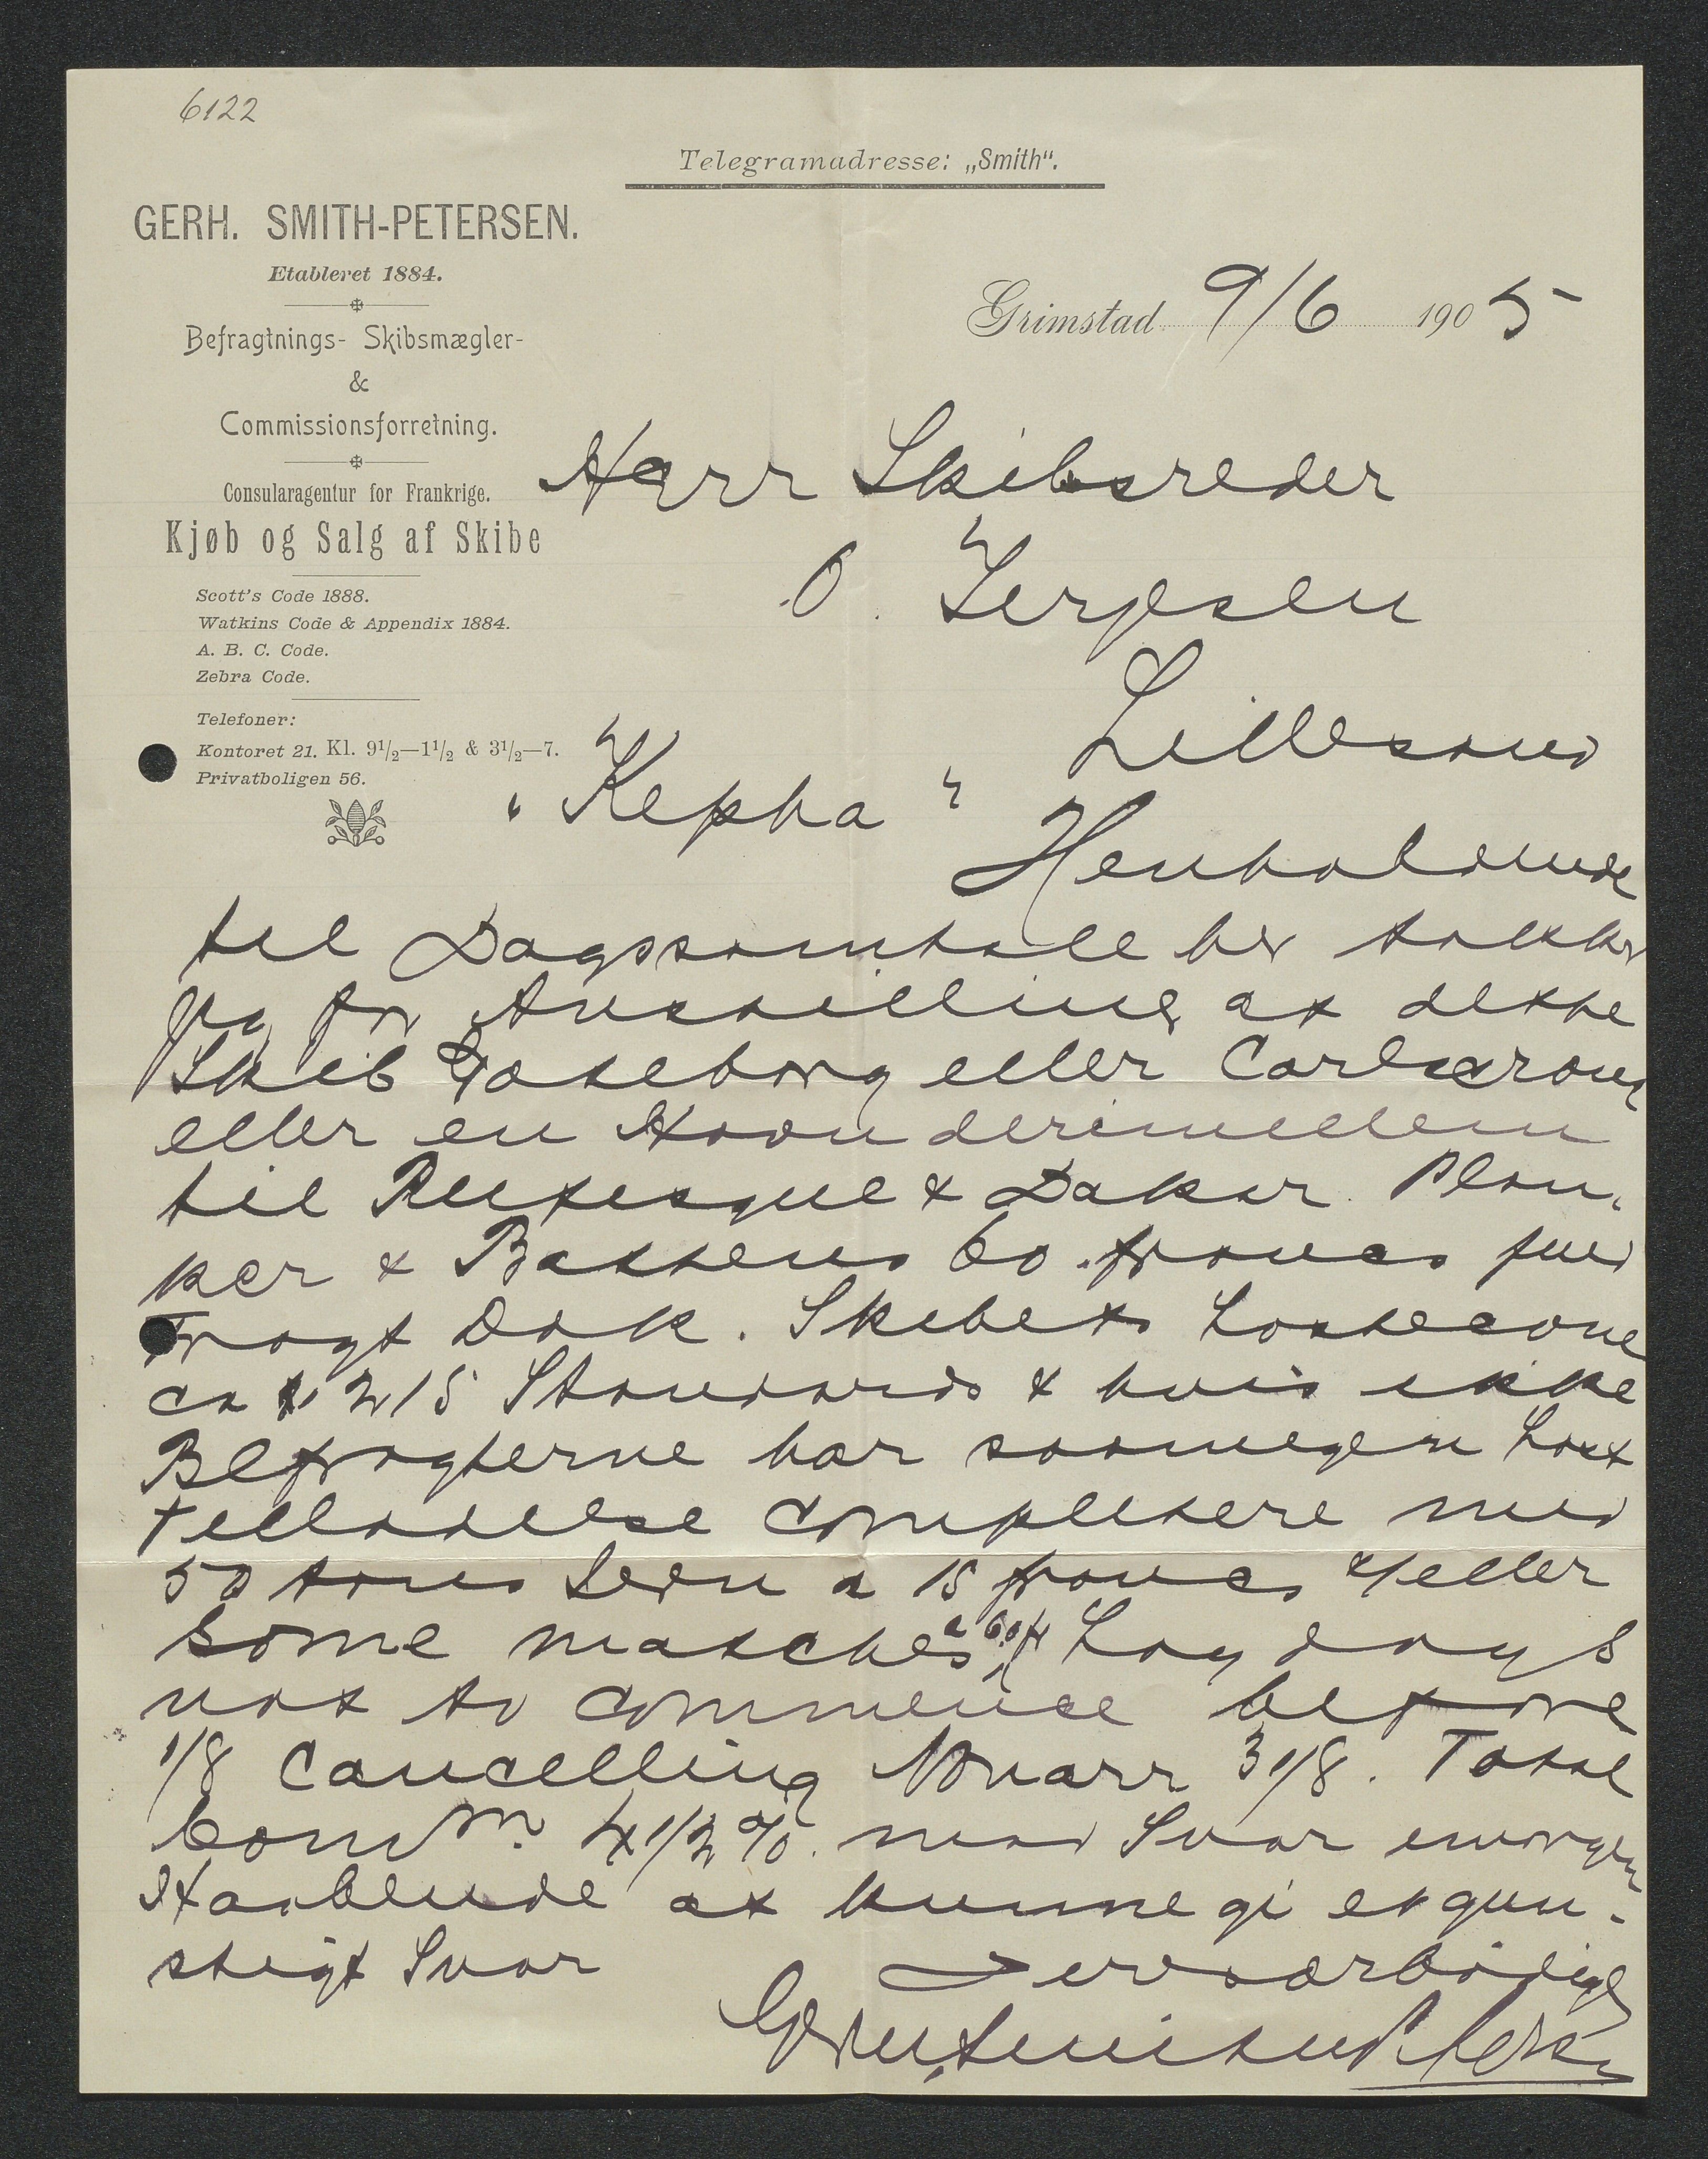 6122
Telegramadresse: „Smith“.
GERH. SMITH-PETERSEN.
Etableret 1884.
Befragtnings- Skibsmægler-
&
Commissionsforretning.
Consularagentur for Frankrige.
Kjøb og Salg af Skibe
Scott's Code 1888.
Watkins Code & Appendix 1884.
A. B. C. Code.
Zebra Code.
Telefoner:
Kontoret 21. Kl. 9½—1½ & 3½—7.
Privatboligen 56.
Grimstad 9/6 1905
Herr Skibsreder
O. Terjesen
Lillesand
"Kepha"
Henholdende
til Dagssamtale her takker
jeg for Anstilling at dette
Skib Gøteborg eller Carlscrona
eller en Havn derimellem
til Rufisque & Dakar. Plan-
ker & Battens 60 francs fuld
Fragt Dæk. Skibets Lasteevne
ca 215 Standards & hvis ikke
Befragterne har saamegen Last
Tilladelse complettere med
50 tons Jern a 15 francs &/eller
some matches a 60 f Lay days
not to commence before
1/8 Cancelling Novarr 31/8. Total
Comm. 4 1/2 %. med Svar imorgen
Haabende at kunne gi et gun-
stigt Svar
Ærværbødigst
Gerh Smith Petersen